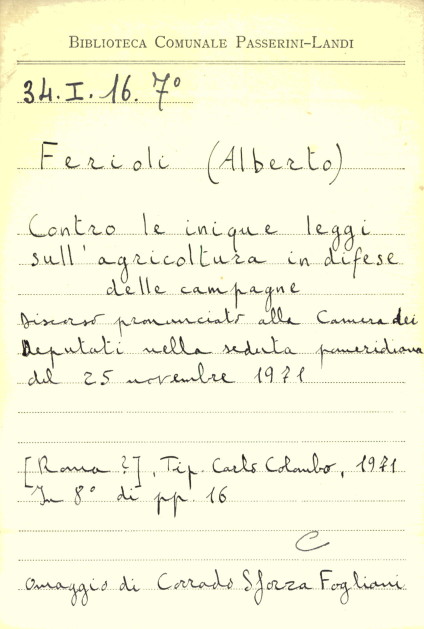 BIBLIOTECA COMUNALE PASSERINI-LANDI
34. I. 16. 7°
Ferioli (Alberto)
Contro le inique leggi
sull'agricoltura in difese
delle campagne
Discorso pronunciato alla Camera dei
Deputati nella seduta pomeridiana
del 25 novembre 1971
[Roma?], Tip. Carlo Colombo, 1971
In 8° di pp. 16
C
Omaggio di Corrado Sforza Fogliani